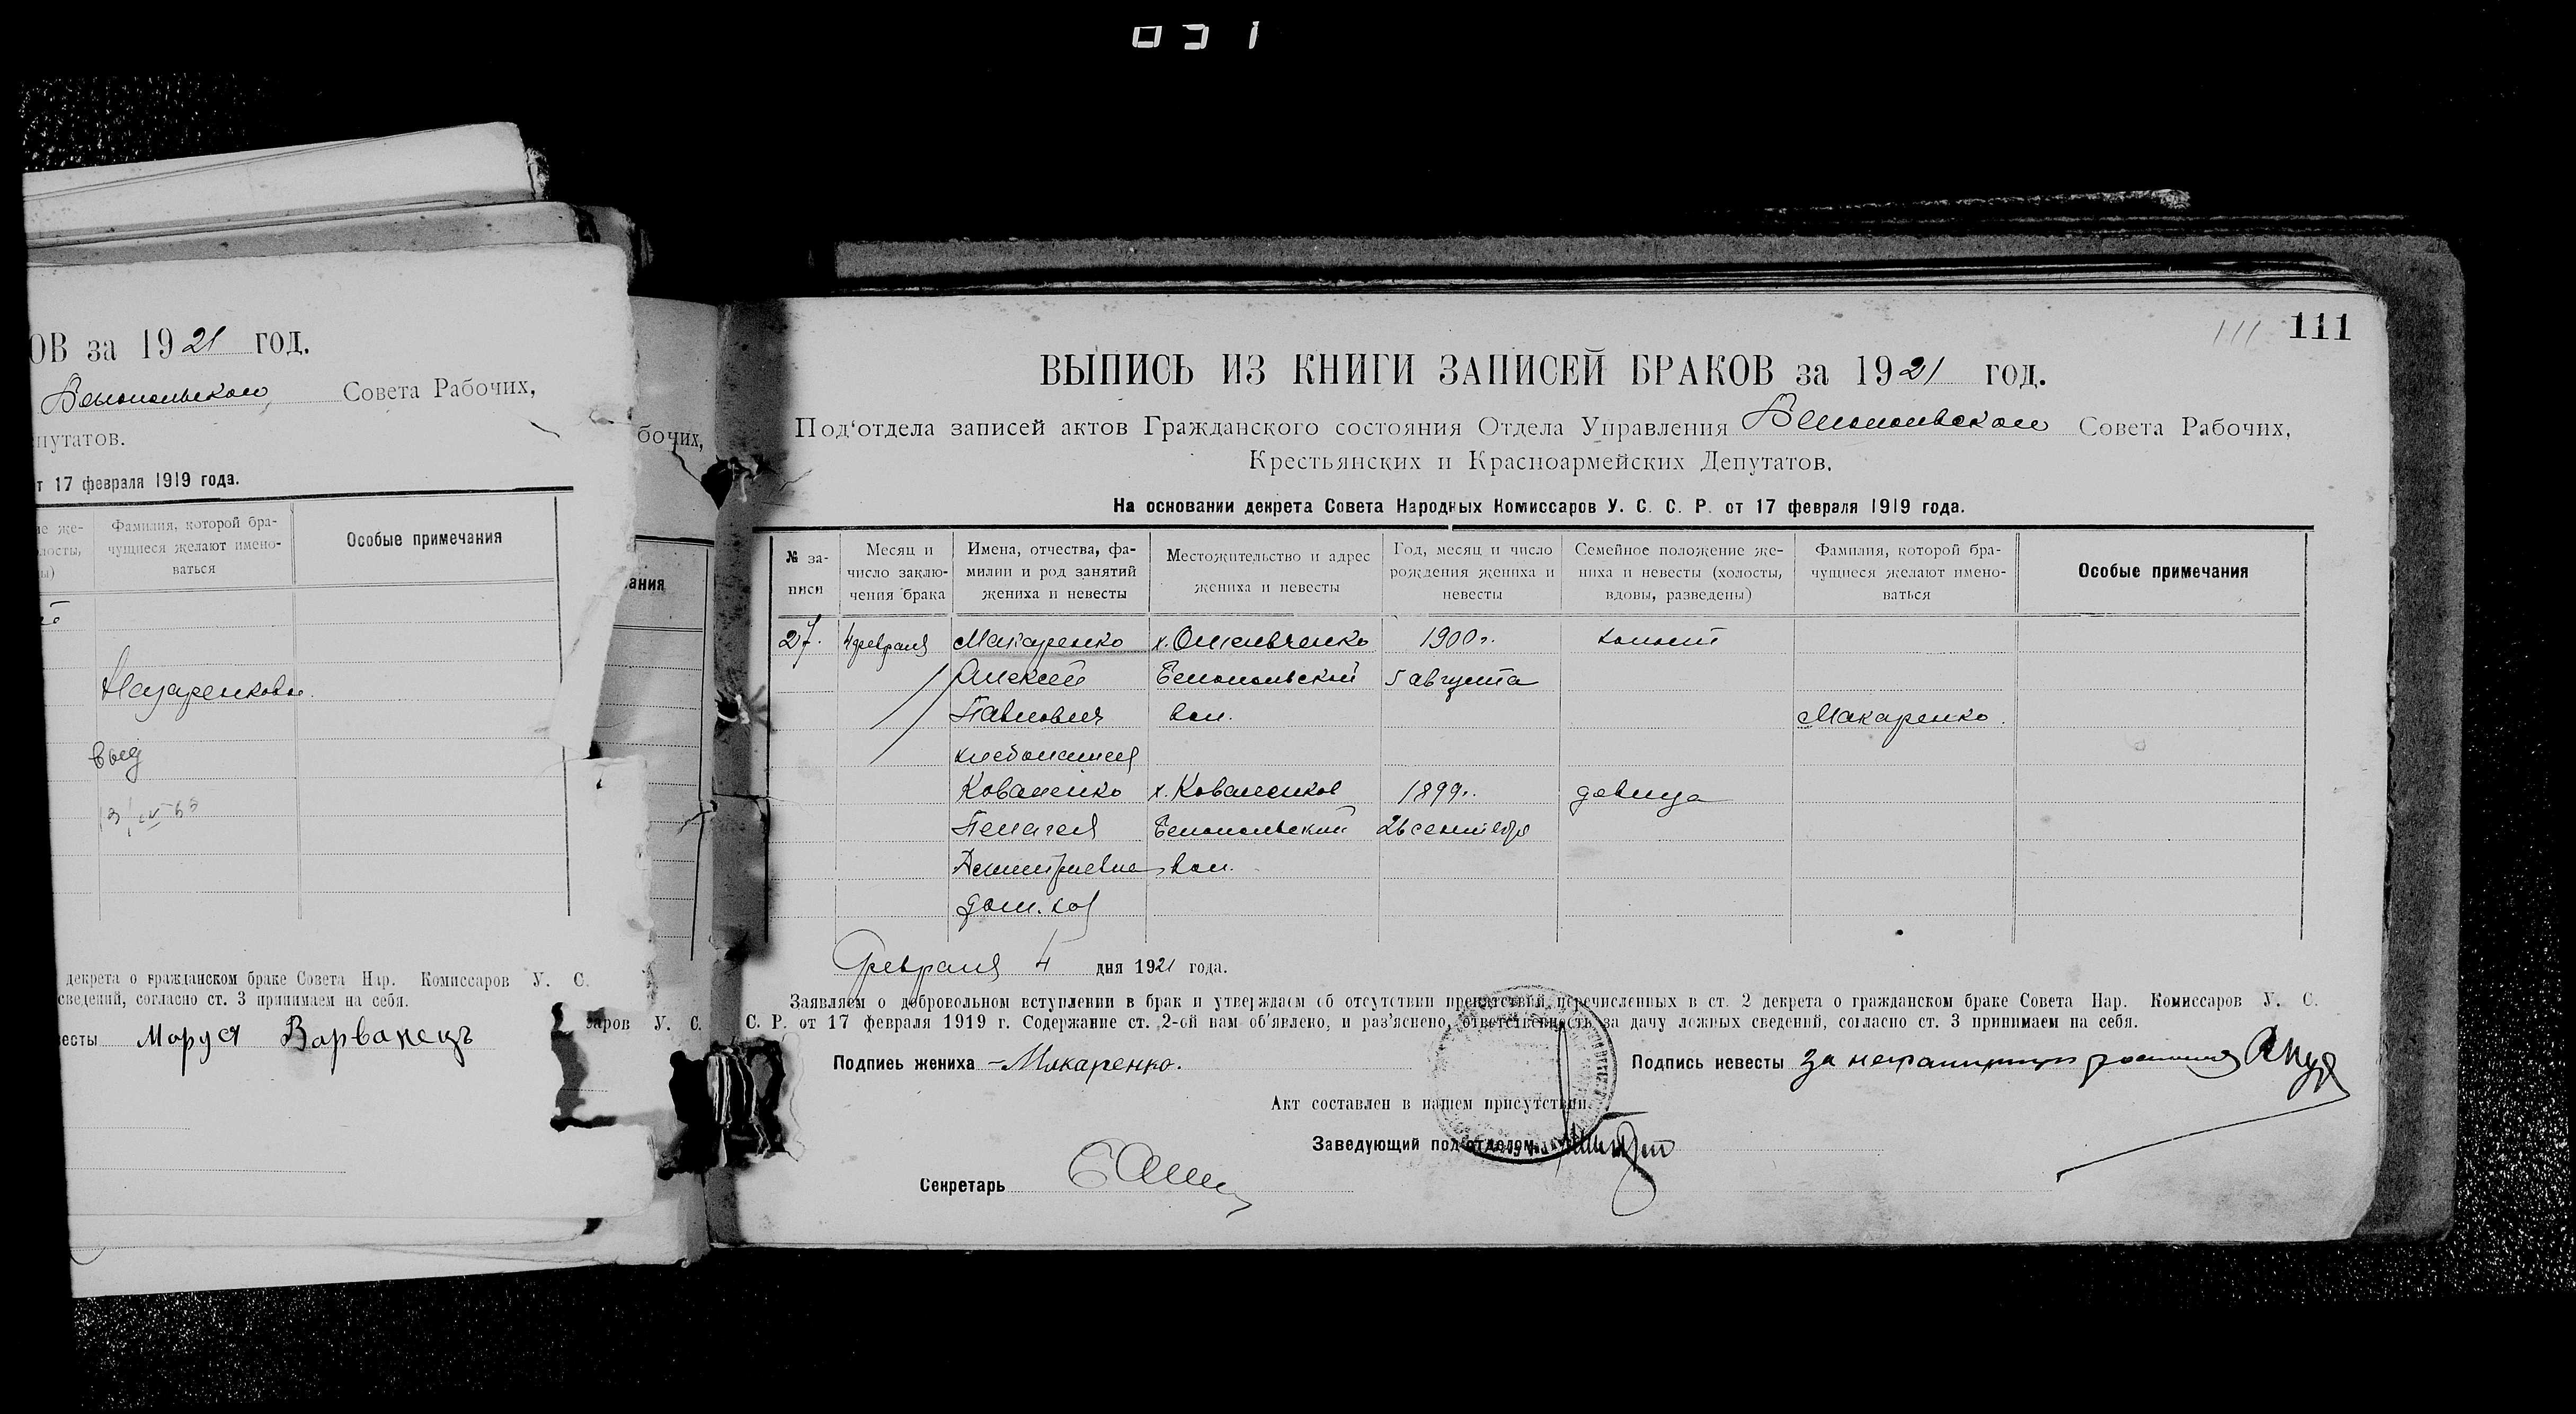 031
ОВ за 1921 год.
Совета Рабочих,
путатов.
т 17 февраля 1919 года.
ие же-
лосты,
ы)
Фамилия, которой бра-
чущиеся желают имено-
ваться
Особые примечания
выд
декрета о гражданском браке Совета Нар. Комиссаров У. С.
сведений, согласно ст. 3 принимаем на себя.
весты Маруся Варванець
бочих,
ания
заров У. С.
111 111
ВЫПИСЬ ИЗ КНИГИ ЗАПИСЕЙ БРАКОВ за 1921 год.
Под‘отдела записей актов Гражданского состояния Отдела Управления Совета Рабочих,
Крестьянских и Красноармейских Депутатов.
На основании декрета Совета Народных Комиссаров У. С. С. Р. от 17 февраля 1919 года.
№ за-
писи
Месяц и
число заклю-
чения брака
Имена, отчества, фа-
милии и род занятий
жениха и невесты
Местожительство и адрес
жениха и невесты
Год, месяц и число
рождения жениха и
невесты
Семейное положение же-
ниха и невесты (холосты,
вдовы, разведены)
Фамилия, которой бра-
чущиеся желают имено-
ваться
Особые примечания
27. 4 февраля Макаренко 1900 г. холост
Алексей Белопольской 5 августа
Павлович вол. Макаренко.
хлебопашец
Коваленко х. Коваленков 1899 г. девица
Пелагея Белопольский 26 сентября
Дмитриевна вол.
дом. хоз
Февраля 4 дня 1921 года.
Заявляем о добровольном вступлении в брак и утверждаем об отсутствии препятствий, перечисленных в ст. 2 декрета о гражданском браке Совета Нар. Комиссаров У. С.
С. Р. от 17 февраля 1919 г. Содержание ст. 2-ой нам об'явлено, и раз'яснено, ответственность за дачу ложных сведений, согласно ст. 3 принимаем на себя.
Подпись жениха Макаренко. Подпись невесты за неграмотную
Акт составлен в нашем присутствии.
Заведующий под'отделом
Секретарь